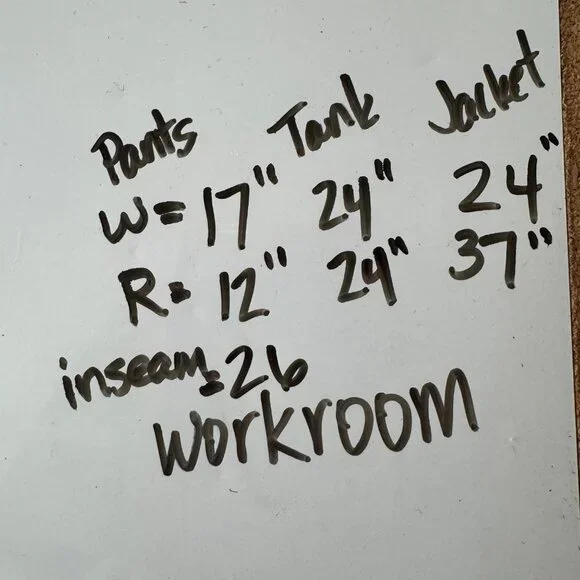 Pants Tank Jacket
W= 17" 24" 24"
R= 12" 24" 37"
inseam=26
workroom